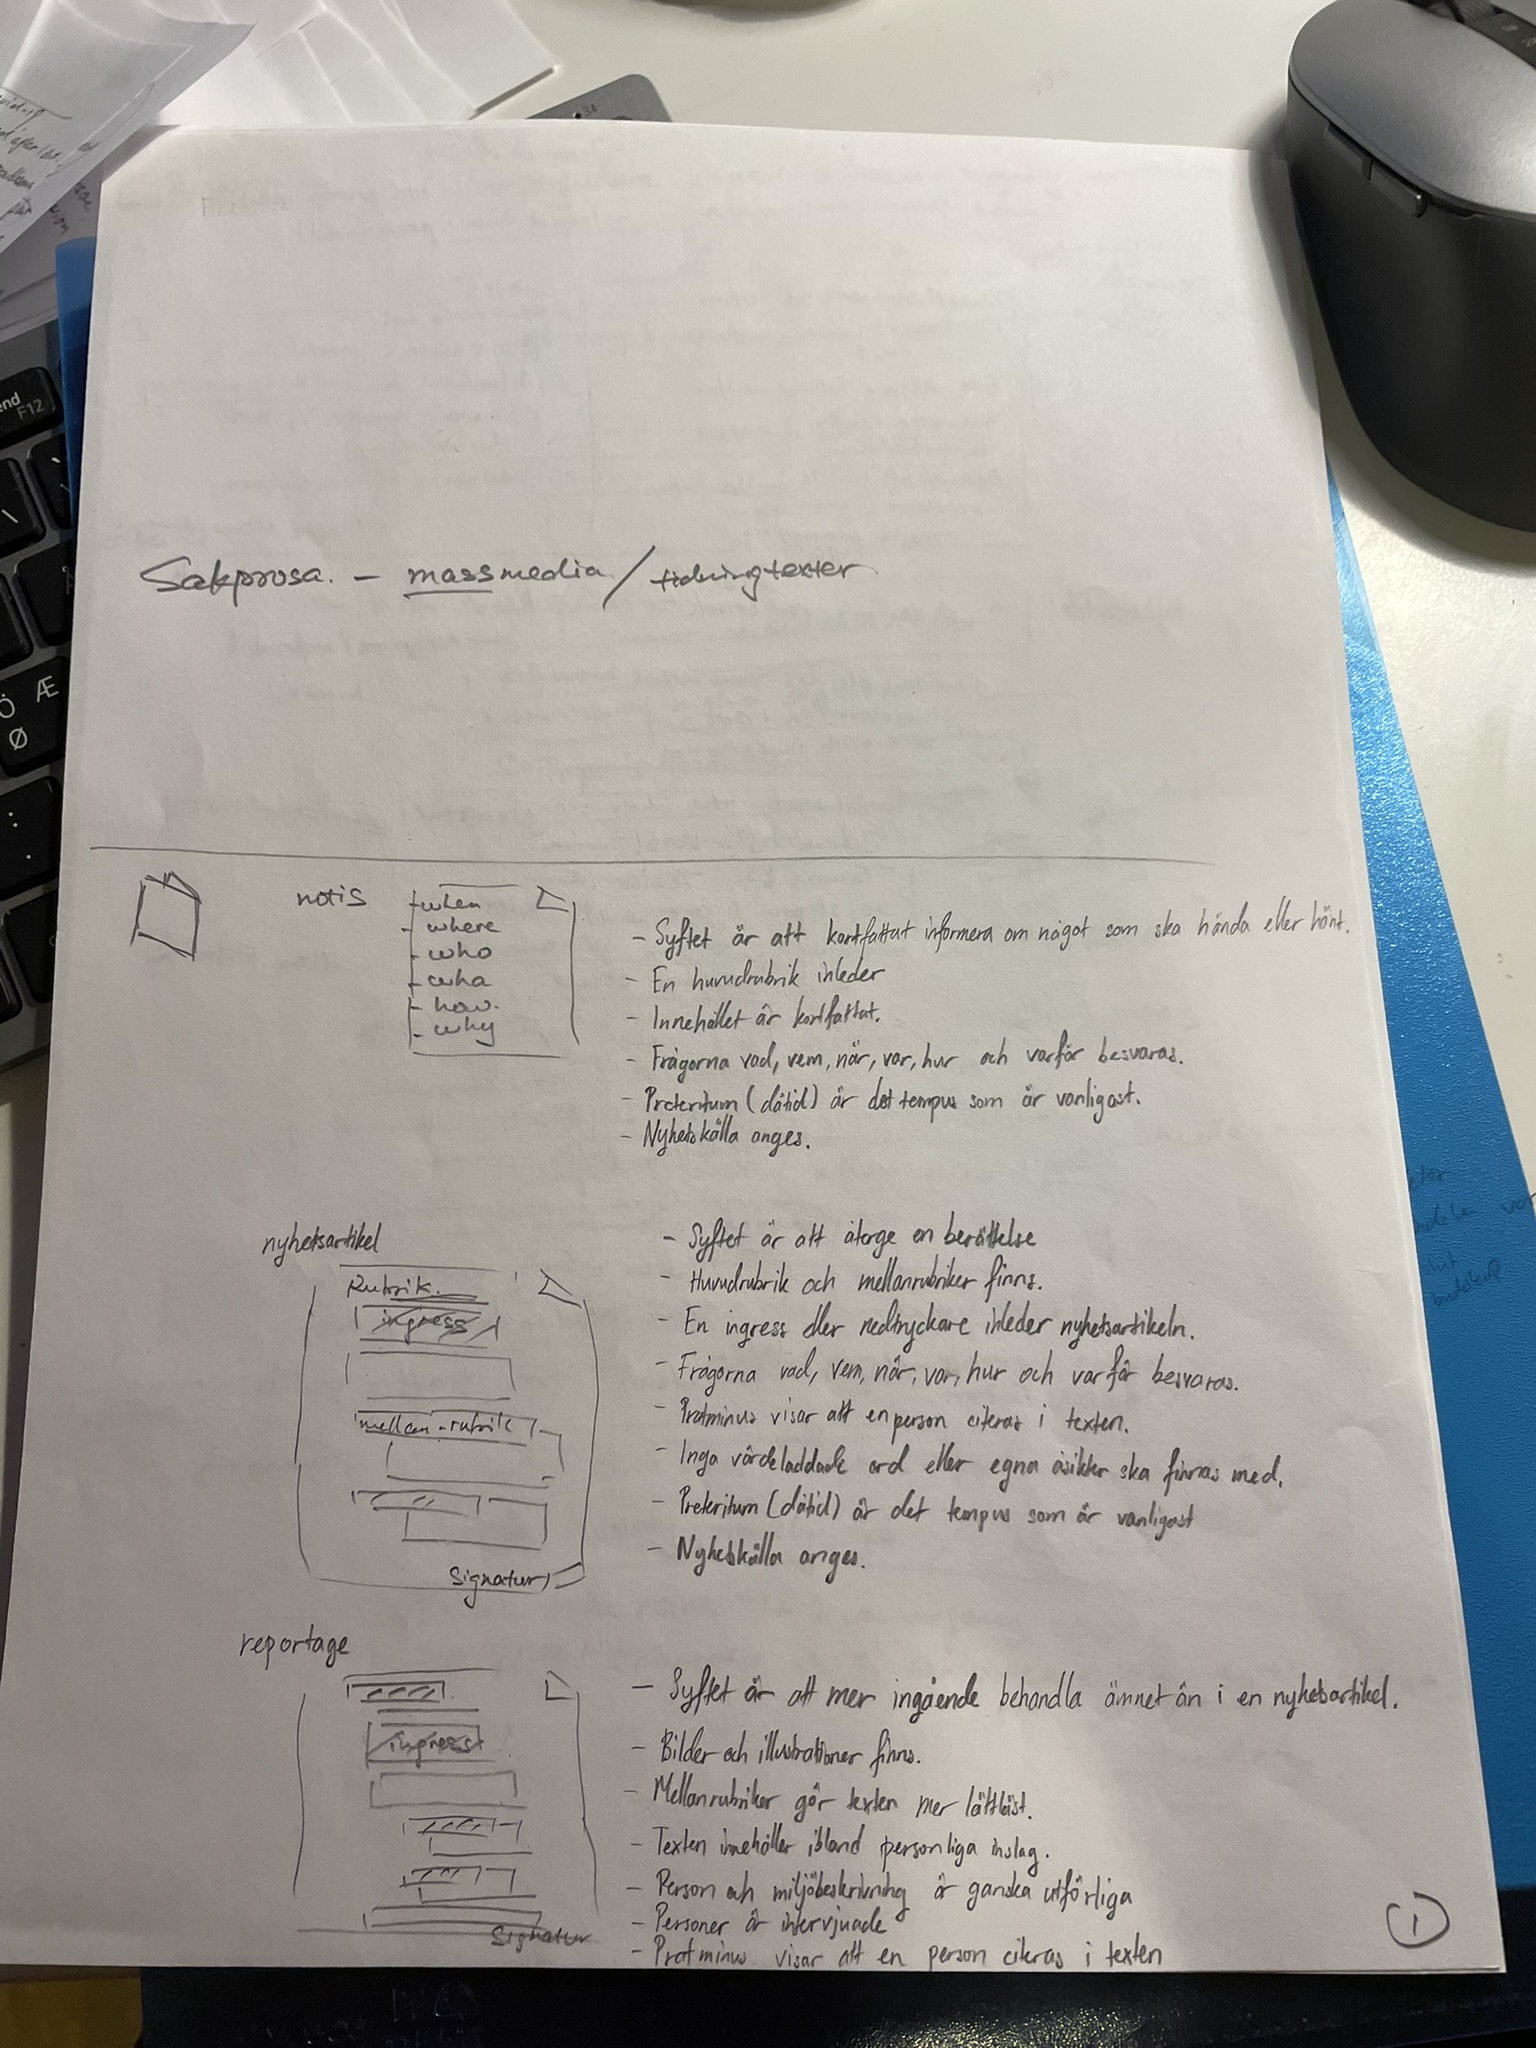 Sakprosa. - massmedia / tidningtexter
notis
- when
- where
- who
- wha
- how.
- why
- Syftet är att kortfattat informera om något som ska hända eller hänt.
- En huvudrubrik inleder
- Innehållet är kortfattat.
- Frågorna vad, vem, när, var, hur och varför besvaras.
- Preteritum (dåtid) är det tempus som är vanligast.
- Nyhetskälla anges.
nyhetsartikel
Rubrik.
ingress
mellan-rubrik
Signatur
- Syftet är att återge en berättelse
- Huvudrubrik och mellanrubriker finns.
- En ingress eller nedtryckare inleder nyhetsartikeln.
- Frågorna vad, vem, når, var, hur och varför besvaras.
- Pratminus visar att en person citeras i texten.
- Inga värdeladdade ord eller egna åsikter ska finnas med.
- Preteritum (dåtid) är det tempus som är vanligast
- Nyhetskälla anges.
reportage
ingress
Signatur
- Syftet är att mer ingående behandla ämnet än i en nyhetsartikel.
- Bilder och illustrationer finns.
- Mellanrubriker gör texten mer lättläst.
- Texten innehåller ibland personliga inslag.
- Person och miljöbeskrivning är ganska utförliga
- Personer är intervjuade
- Pratminus visar att en person citeras i texten
1
end
F12
Ö Æ
Ø